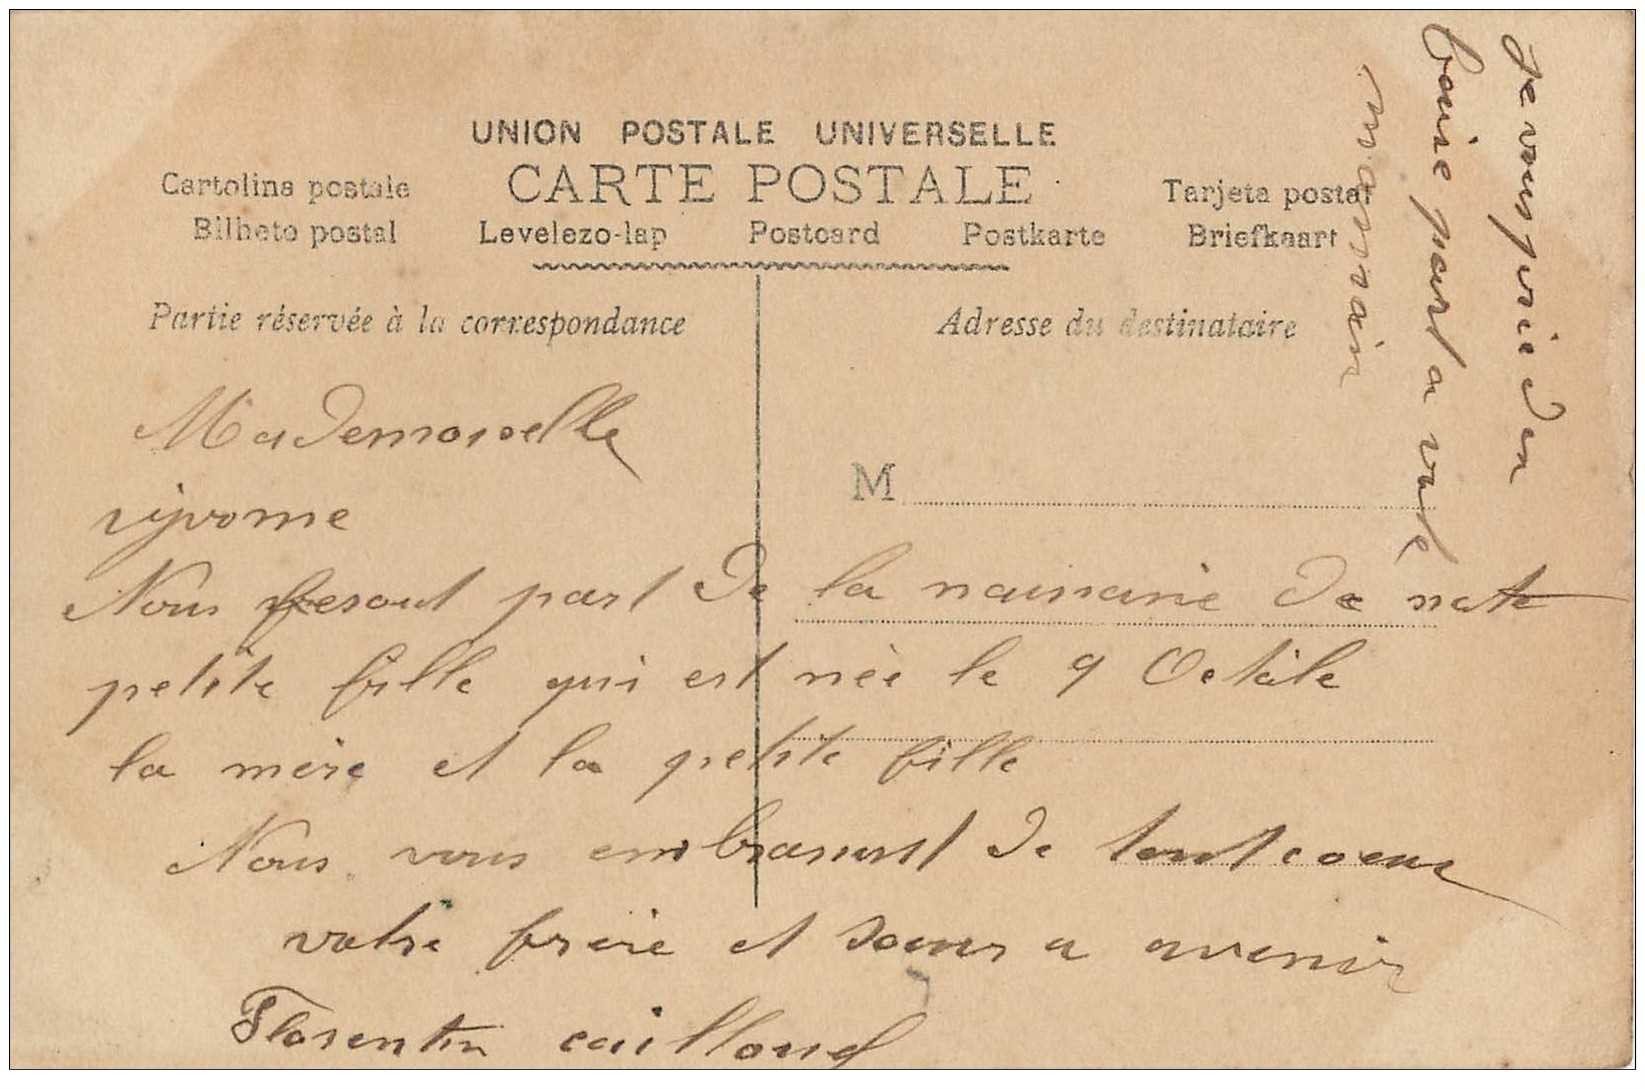 UNION POSTALE UNIVERSELLE
CARTE POSTALE
Cartolina postale
Tarjeta postal
Bilheto postal
Levelezo-lap
Postcard
Postkarte
Briefkaart
Partie réservée à la correspondance
Adresse du destinataire
M
Mademoiselle
Nous fesont part de la naisanse de note
petite fille qui est née le 9 Octobe
la mère et la petite fille
Nous vous embrasunt de tout coeur
votre frere et soeur a avenir
Florentin caillaud
Je vous prie den
faire part a vote
marrain